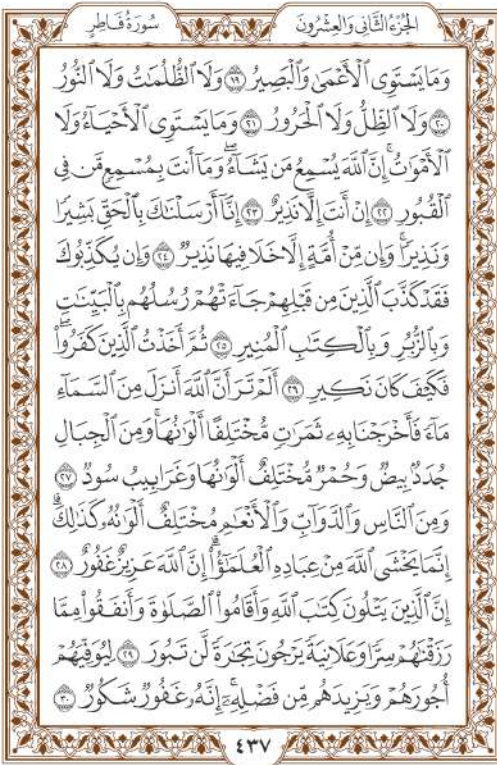 الجُزْءُ الثَّانِي وَالعِشْرُونَ سُورَةُ فَاطِرٍ
وَمَا يَسْتَوِي ٱلْأَعْمَىٰ وَٱلْبَصِيرُ ۝١٩ وَلَا ٱلظُّلُمَٰتُ وَلَا ٱلنُّورُ
۝٢٠ وَلَا ٱلظِّلُّ وَلَا ٱلْحَرُورُ ۝٢١ وَمَا يَسْتَوِي ٱلْأَحْيَآءُ وَلَا
ٱلْأَمْوَٰتُۚ إِنَّ ٱللَّهَ يُسْمِعُ مَن يَشَآءُۖ وَمَآ أَنتَ بِمُسْمِعٖ مَّن فِي
ٱلْقُبُورِ ۝٢٢ إِنْ أَنتَ إِلَّا نَذِيرٌ ۝٢٣ إِنَّآ أَرْسَلْنَٰكَ بِٱلْحَقِّ بَشِيرٗا
وَنَذِيرٗاۚ وَإِن مِّنْ أُمَّةٍ إِلَّا خَلَا فِيهَا نَذِيرٞ ۝٢٤ وَإِن يُكَذِّبُوكَ
فَقَدْ كَذَّبَ ٱلَّذِينَ مِن قَبْلِهِمْ جَآءَتْهُمْ رُسُلُهُم بِٱلْبَيِّنَٰتِ
وَبِٱلزُّبُرِ وَبِٱلْكِتَٰبِ ٱلْمُنِيرِ ۝٢٥ ثُمَّ أَخَذْتُ ٱلَّذِينَ كَفَرُواْۖ
فَكَيْفَ كَانَ نَكِيرِ ۝٢٦ أَلَمْ تَرَ أَنَّ ٱللَّهَ أَنزَلَ مِنَ ٱلسَّمَآءِ
مَآءٗ فَأَخْرَجْنَا بِهِۦ ثَمَرَٰتٖ مُّخْتَلِفًا أَلْوَٰنُهَاۚ وَمِنَ ٱلْجِبَالِ
جُدَدُۢ بِيضٞ وَحُمْرٞ مُّخْتَلِفٌ أَلْوَٰنُهَا وَغَرَابِيبُ سُودٞ ۝٢٧
وَمِنَ ٱلنَّاسِ وَٱلدَّوَآبِّ وَٱلْأَنْعَٰمِ مُخْتَلِفٌ أَلْوَٰنُهُۥ كَذَٰلِكَۗ
إِنَّمَا يَخْشَى ٱللَّهَ مِنْ عِبَادِهِ ٱلْعُلَمَٰٓؤُاْۗ إِنَّ ٱللَّهَ عَزِيزٌ غَفُورٌ ۝٢٨
إِنَّ ٱلَّذِينَ يَتْلُونَ كِتَٰبَ ٱللَّهِ وَأَقَامُواْ ٱلصَّلَوٰةَ وَأَنفَقُواْ مِمَّا
رَزَقْنَٰهُمْ سِرّٗا وَعَلَانِيَةٗ يَرْجُونَ تِجَٰرَةٗ لَّن تَبُورَ ۝٢٩ لِيُوَفِّيَهُمْ
أُجُورَهُمْ وَيَزِيدَهُم مِّن فَضْلِهِۦٓۚ إِنَّهُۥ غَفُورٞ شَكُورٞ ۝٣٠
٤٣٧